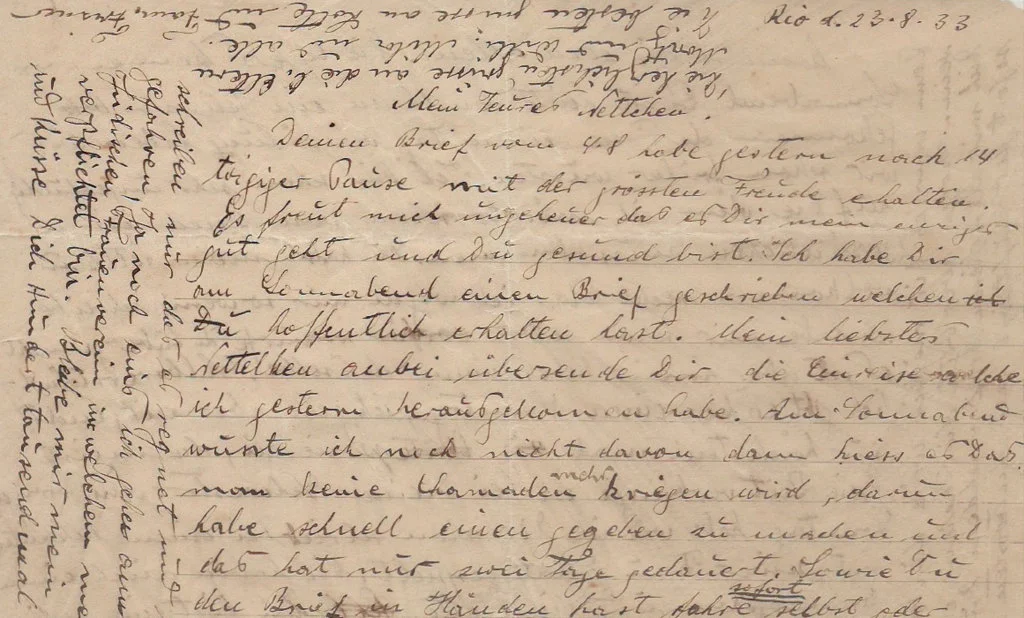 Rio d. 23.8.33
Mein Teures Nettchen.
Deinen Brief vom 4.8 habe gestern nach 14
tägiger Pause mit der grössten Freude erhalten.
Es freut mich ungeheuer das es Dir mein einziges
gut geht und Du gesund bist. Ich habe Dir
am Sonnabend einen Brief geschrieben welchen
Du hoffentlich erhalten hast. Mein liebstes
Nettelken anbei übersende Dir die Einreise welche
ich gestern herausgekommen habe. Am Sonnabend
wusste ich noch nicht davon dann hiess es Das
man keine Chamaden mehr kriegen wird, darum
habe schnell einen gegeben zu machen und
das hat nur zwei Tage gedauert. Sowie Du
den Brief in Händen hast fahre sofort selbst oder
schreiben nur das es regnet und
gefahren, Ja noch eins ich gehe
Jüdischen Frauenverein in welchem
verpflichtet bin. Bleibe mir mein
und küsse Dich Hunderttausendmal
die herzlichsten grüsse an die l. Eltern
Moritz und Willi, und alle.
Die besten grüsse an Lotte und